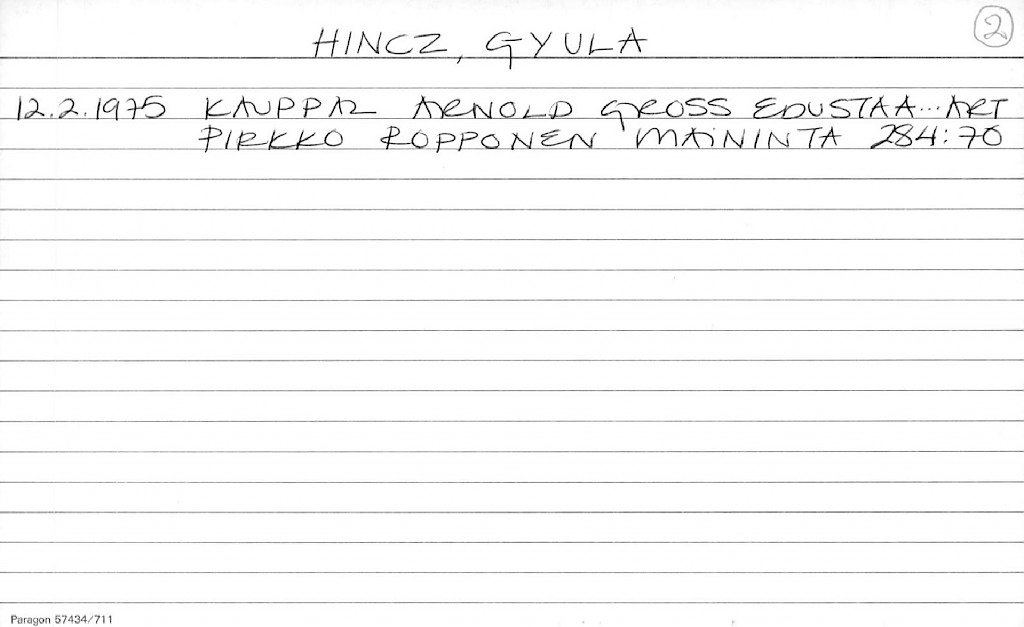 HINCZ, GYULA
2
12.2.1975 KAUPPAL ARNOLD GROSS EDUSTAA...ART
PIRKKO ROPPONEN MAININTA 284:70
Paragon 57434/711